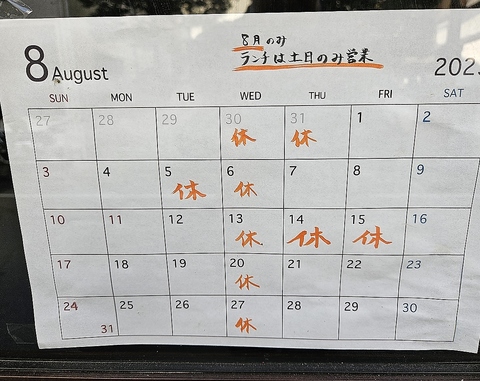 8月のみ
ランチは土日のみ営業
8 August
202
SUN MON TUE WED THU FRI SAT
27 28 29 30 31 1 2
休 休
3 4 5 6 7 8 9
休 休
10 11 12 13 14 15 16
休 休 休
17 18 19 20 21 22 23
休
24 25 26 27 28 29 30
31 休